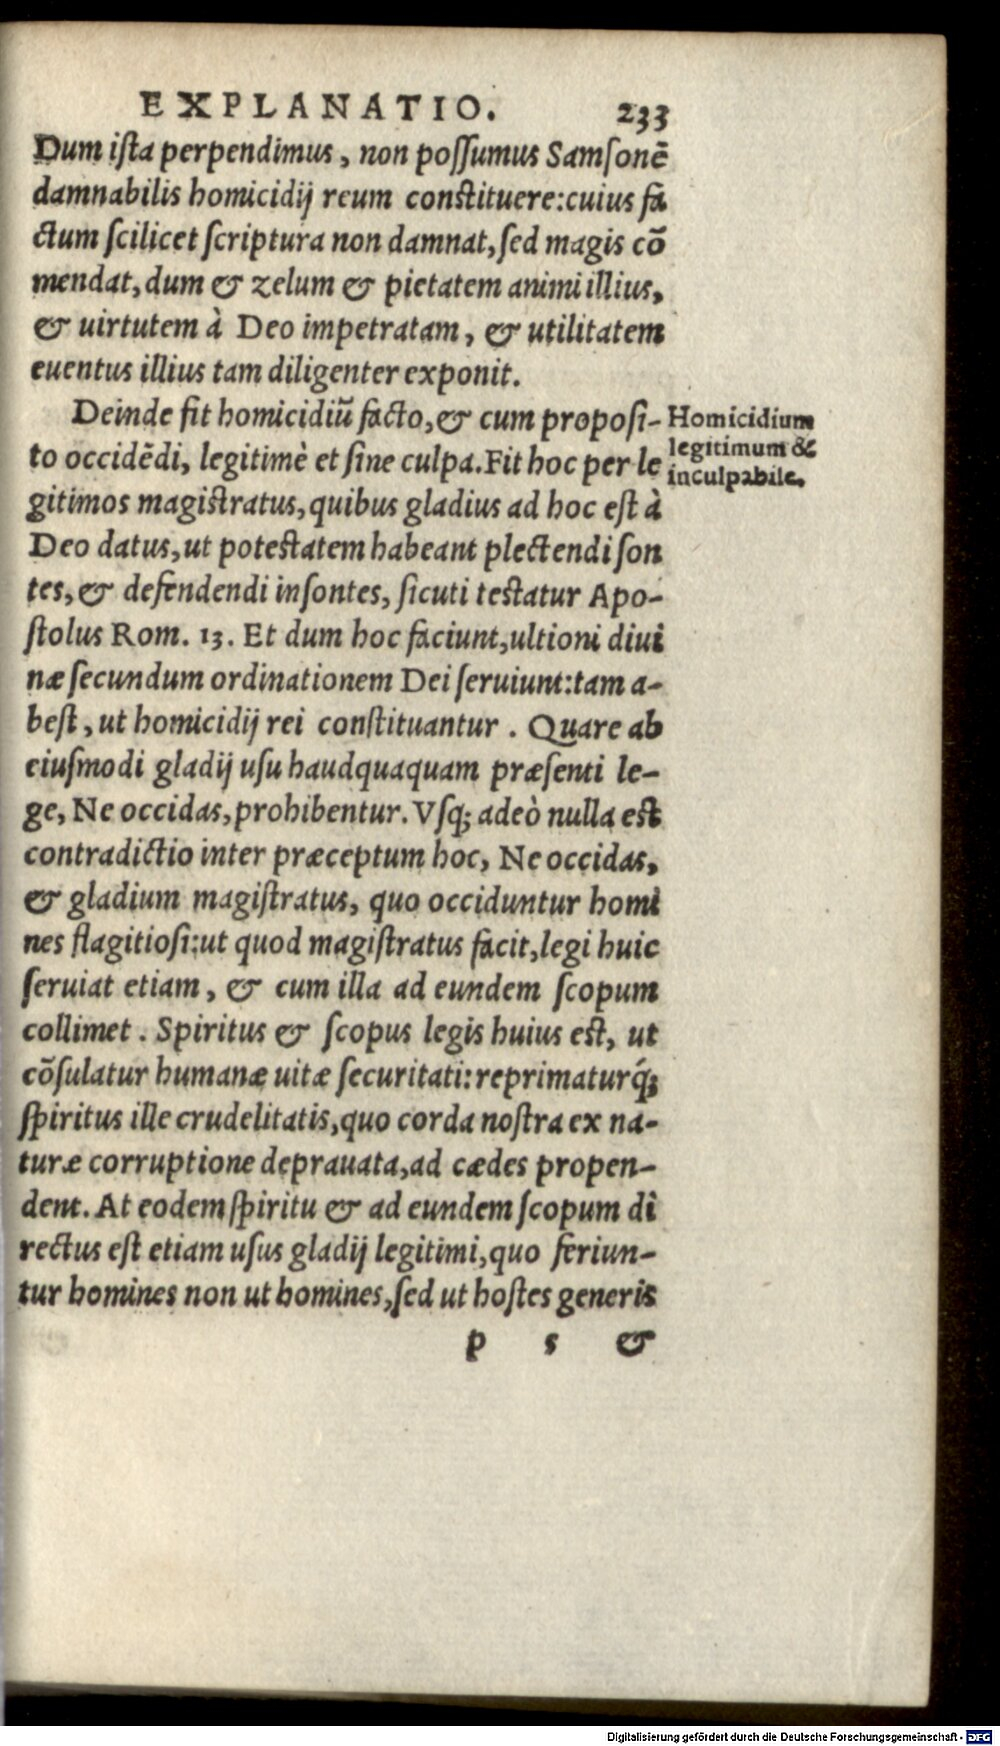 EXPLANATIO. 233
Dum iſta perpendimus, non poſſumus Samſonē
damnabilis homicidij reum conſtituere:cuius fa
ctum ſcilicet ſcriptura non damnat,ſed magis cō
mendat,dum & zelum & pietatem animi illius,
& uirtutem à Deo impetratam, & utilitatem
euentus illius tam diligenter exponit.
Deinde fit homicidiũ facto,& cum propoſi-
to occidēdi, legitimè et ſine culpa.Fit hoc per le
gitimos magiſtratus,quibus gladius ad hoc eſt à
Deo datus,ut poteſtatem habeant plectendi ſon
tes,& defendendi inſontes, ſicuti teſtatur Apo-
ſtolus Rom. 13. Et dum hoc faciunt,ultioni diui
næ ſecundum ordinationem Dei ſeruiunt:tam a-
beſt, ut homicidij rei conſtituantur. Quare ab
eiuſmodi gladij uſu haudquaquam præſenti le-
ge, Ne occidas,prohibentur. Vſq; adeò nulla eſt
contradictio inter præceptum hoc, Ne occidas,
& gladium magiſtratus, quo occiduntur homi
nes flagitioſi:ut quod magiſtratus facit,legi huic
ſeruiat etiam, & cum illa ad eundem ſcopum
collimet. Spiritus & ſcopus legis huius eſt, ut
cōſulatur humanæ uitæ ſecuritati:reprimaturq́;
ſpiritus ille crudelitatis,quo corda noſtra ex na-
turæ corruptione deprauata,ad cædes propen-
dent. At eodem ſpiritu & ad eundem ſcopum di
rectus eſt etiam uſus gladij legitimi,quo feriun-
tur homines non ut homines,ſed ut hoſtes generis
p 5 &
Homicidium
legitimum &
inculpabile.
Digitalisierung gefördert durch die Deutsche Forschungsgemeinschaft - DFG